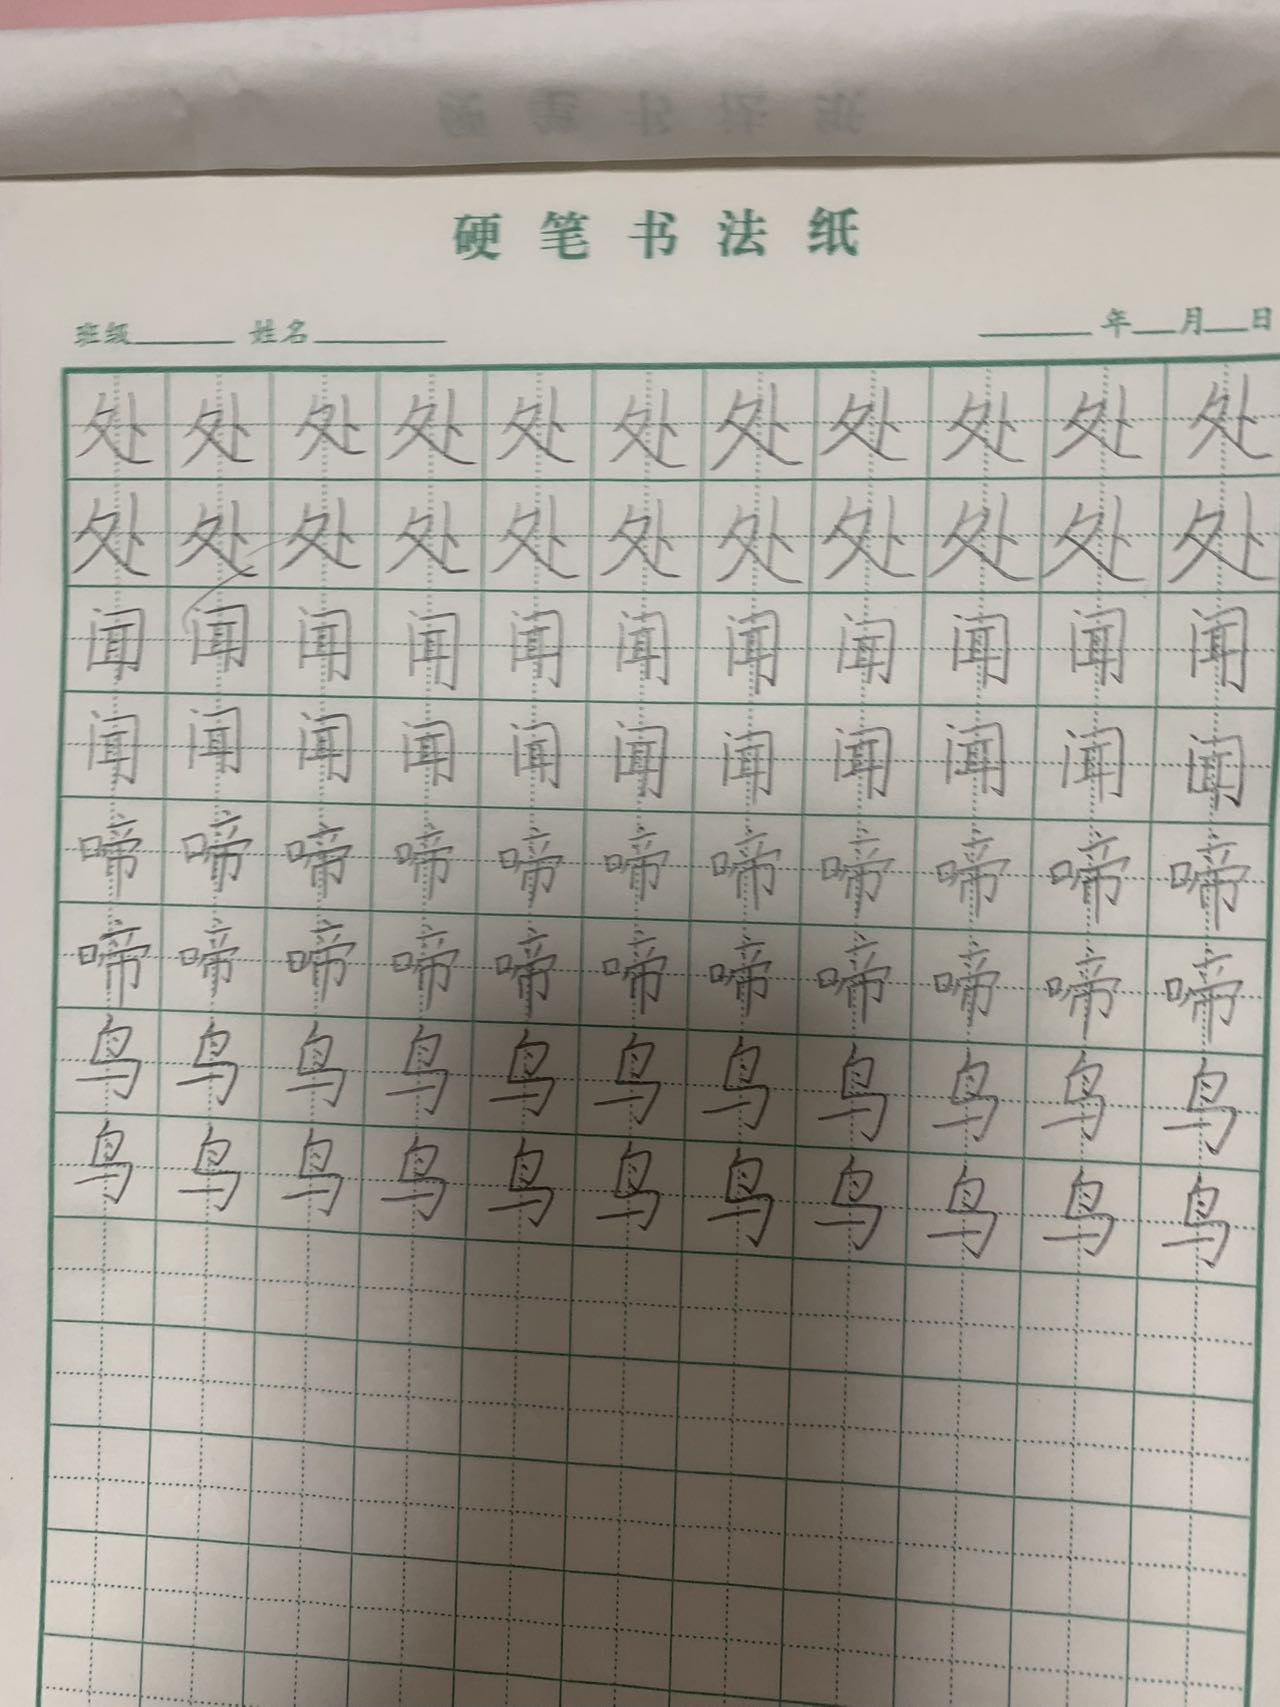 硬笔书法纸
班级 姓名 年 月 日
处处处处处处处处处处处
处处处处处处处处处处处
闻闻闻闻闻闻闻闻闻闻闻
闻闻闻闻闻闻闻闻闻闻闻
啼啼啼啼啼啼啼啼啼啼啼
啼啼啼啼啼啼啼啼啼啼啼
鸟鸟鸟鸟鸟鸟鸟鸟鸟鸟鸟
鸟鸟鸟鸟鸟鸟鸟鸟鸟鸟鸟